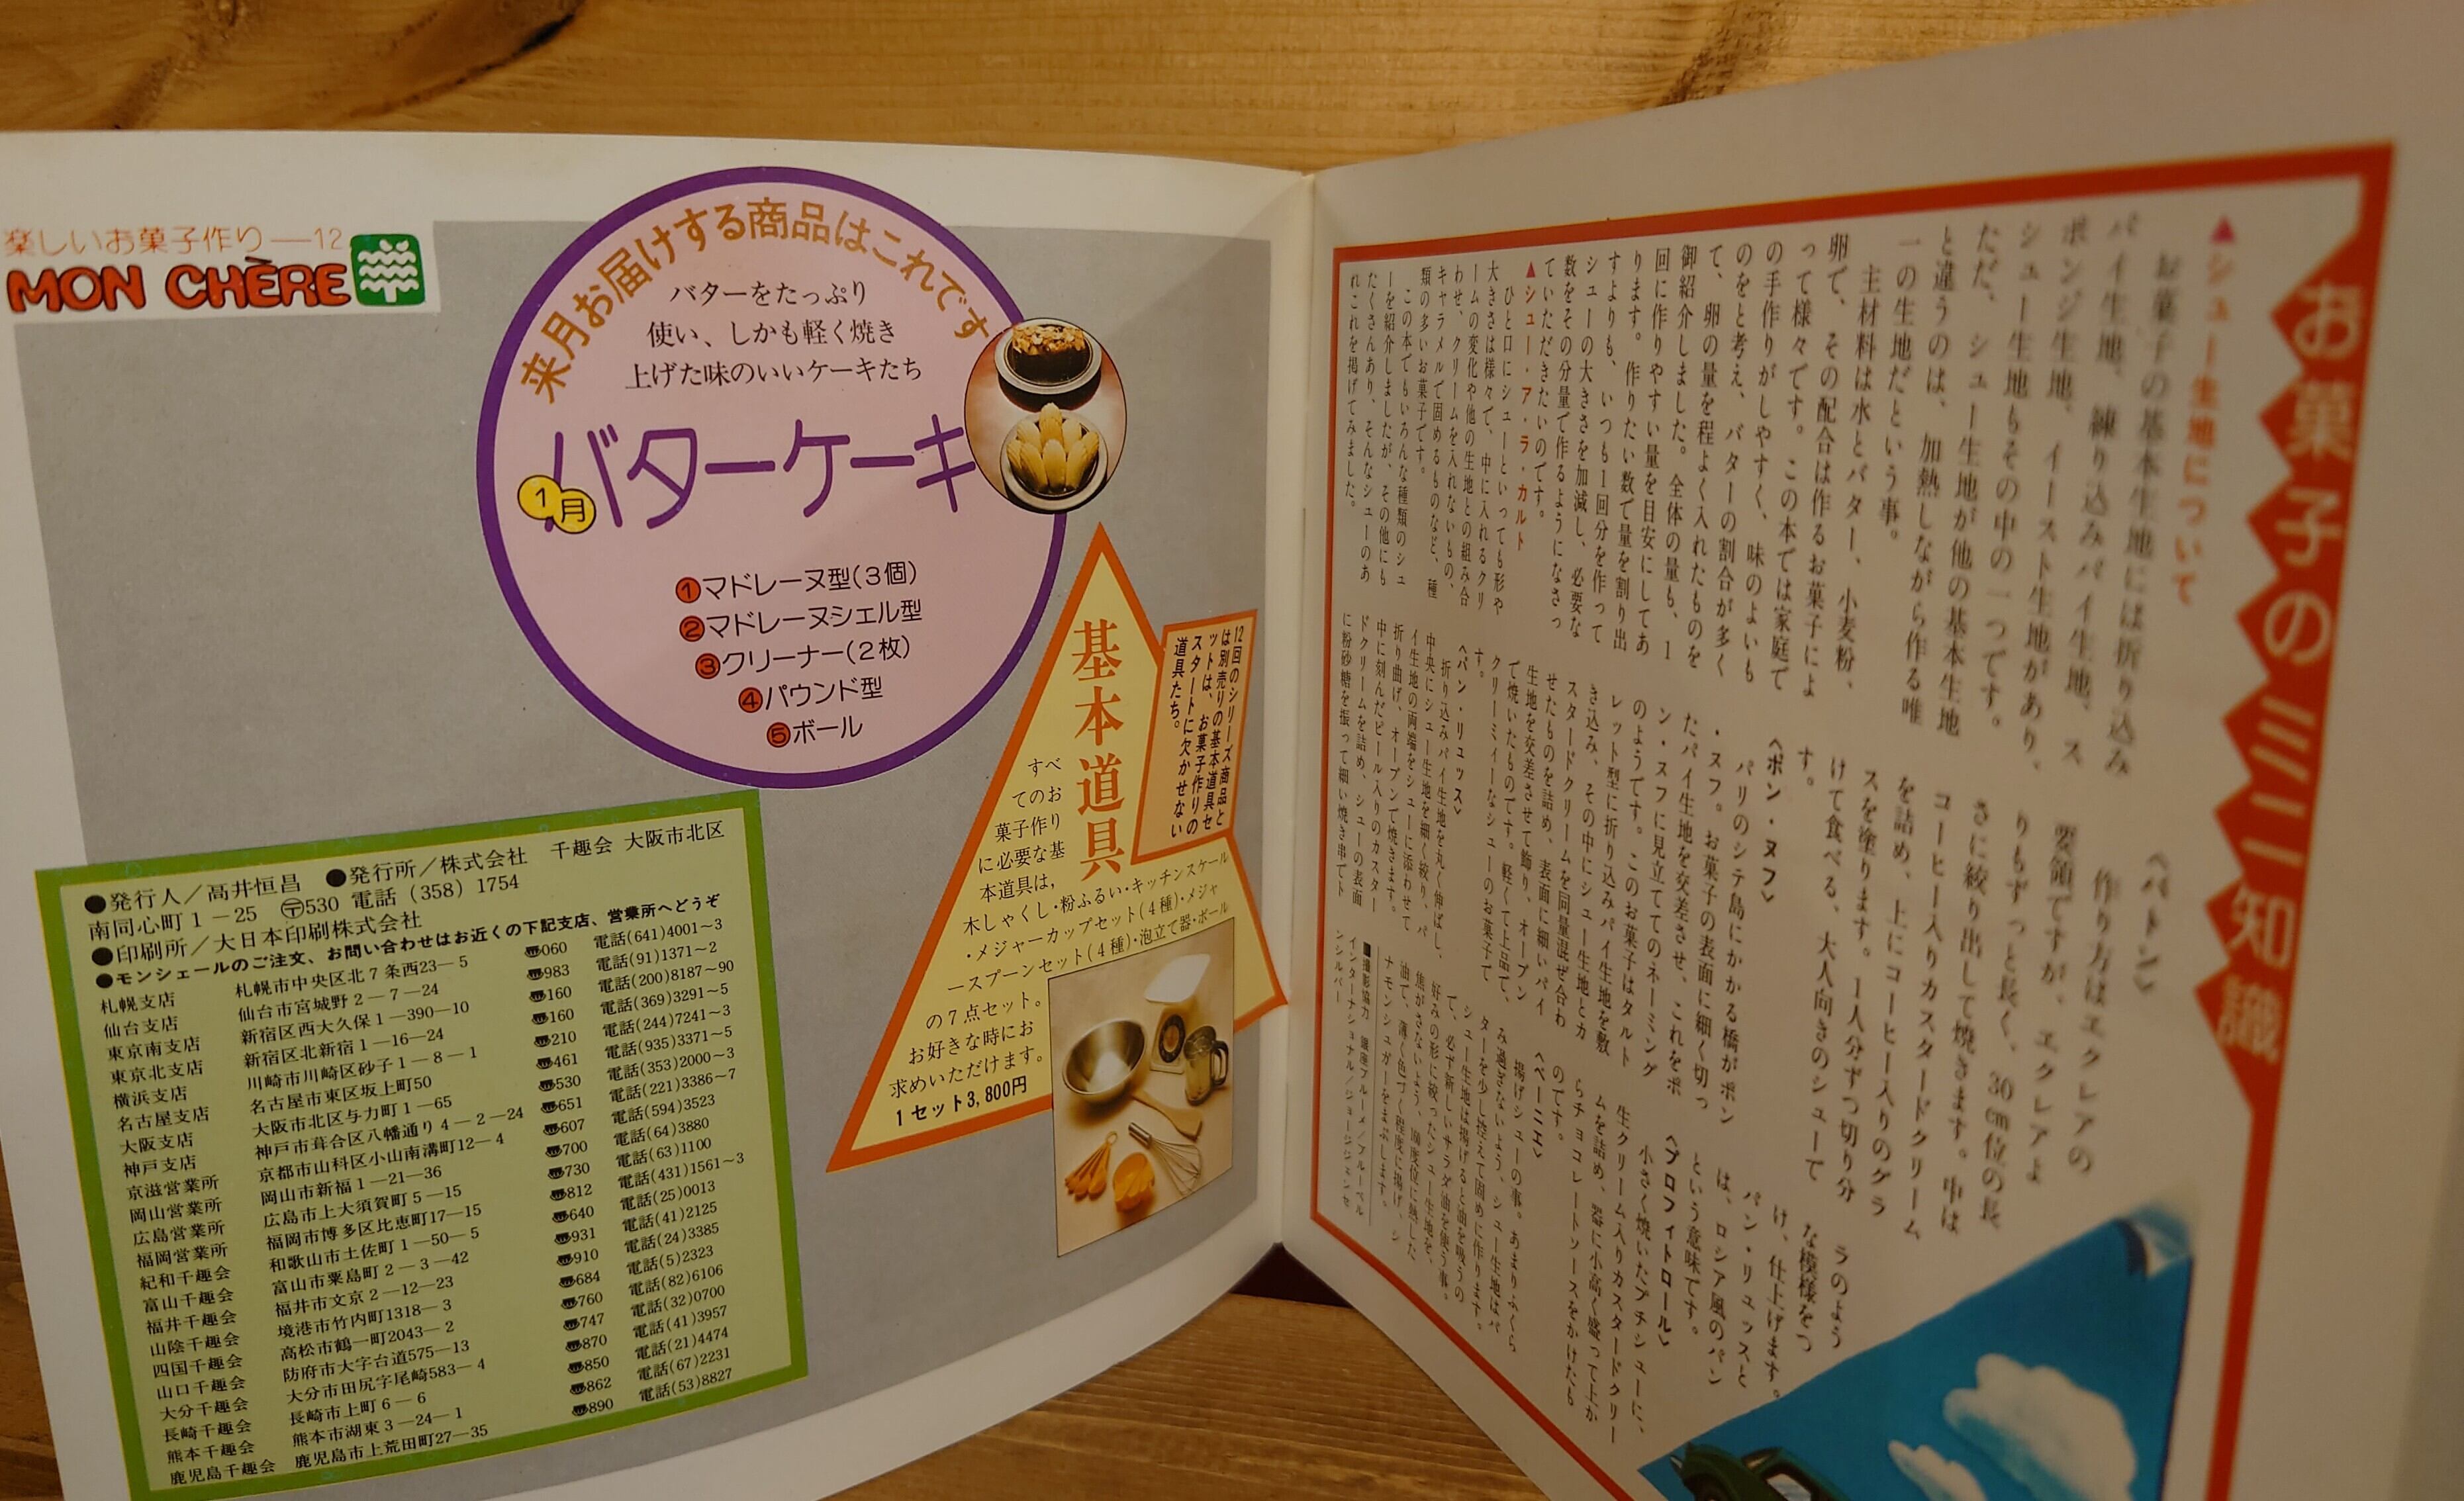 楽しいお菓子作り―12
MON CHÈRE
来月お届けする商品はこれです
バターをたっぷり
使い、しかも軽く焼き
上げた味のいいケーキたち
バターケーキ
1月
①マドレーヌ型(3個)
②マドレーヌシェル型
③クリーナー(2枚)
④パウンド型
⑤ボール
12回のシリーズ商品と
は別売りの基本道具セ
ットは、お菓子作りの
スタートに欠かせない
道具たち。
基本道具
すべ
てのお
菓子作り
に必要な基
本道具は、
木しゃくし・粉ふるい・キッチンスケール
・メジャーカップセット(4種)・メジャ
ースプーンセット(4種)・泡立て器・ボール
の7点セット。
お好きな時にお
求めいただけます。
1セット3,800円
●発行人／高井恒昌 ●発行所／株式会社 千趣会 大阪市北区
南同心町1－25 〒530 電話(358)1754
●印刷所／大日本印刷株式会社
●モンシェールのご注文、お問い合わせはお近くの下記支店、営業所へどうぞ
札幌支店 札幌市中央区北7条西23―5 ☎060 電話(641)4001~3
仙台支店 仙台市宮城野2―7―24 ☎983 電話(91)1371~2
東京南支店 新宿区西大久保1―390―10 ☎160 電話(200)8187~90
東京北支店 新宿区北新宿1―16―24 ☎160 電話(369)3291~5
横浜支店 川崎市川崎区砂子1―8―1 ☎210 電話(244)7241~3
名古屋支店 名古屋市東区坂上町50 ☎461 電話(935)3371~5
大阪支店 大阪市北区与力町1―65 ☎530 電話(353)2000~3
神戸支店 神戸市葺合区八幡通り4―2―24 ☎651 電話(221)3386~7
京滋営業所 京都市山科区小山南溝町12―4 ☎607 電話(594)3523
岡山営業所 岡山市新福1―21―36 ☎700 電話(64)3880
広島営業所 広島市上大須賀町5―15 ☎730 電話(63)1100
福岡営業所 福岡市博多区比恵町17―15 ☎812 電話(431)1561~3
紀和千趣会 和歌山市土佐町1―50―5 ☎640 電話(25)0013
富山千趣会 富山市粟島町2―3―42 ☎931 電話(41)2125
福井千趣会 福井市文京2―12―23 ☎910 電話(24)3385
山陰千趣会 境港市竹内町1318―3 ☎684 電話(5)2323
四国千趣会 高松市鶴一町2043―2 ☎760 電話(82)6106
山口千趣会 防府市大字台道575―13 ☎747 電話(32)0700
大分千趣会 大分市田尻字尾崎583―4 ☎870 電話(41)3957
長崎千趣会 長崎市上町6―6 ☎850 電話(21)4474
熊本千趣会 熊本市湖東3―24―1 ☎862 電話(67)2231
鹿児島千趣会 鹿児島市上荒田町27―35 ☎890 電話(53)8827
お菓子のミニ知識
▲シュー生地について
お菓子の基本生地には折り込み
パイ生地、練り込みパイ生地、ス
ポンジ生地、イースト生地があり、
シュー生地もその中の一つです。
ただ、シュー生地が他の基本生地
と違うのは、加熱しながら作る唯
一の生地だという事。
主材料は水とバター、小麦粉、
卵で、その配合は作るお菓子によ
って様々です。この本では家庭で
の手作りがしやすく、味のよいも
のをと考え、バターの割合が多く
て、卵の量を程よく入れたものを
御紹介しました。全体の量も、1
回に作りやすい量を目安にしてあ
ります。作りたい数で量を割り出
すよりも、いつも1回分を作って
シューの大きさを加減し、必要な
数をその分量で作るようになさっ
ていただきたいのです。
▲シュー・ア・ラ・カルト
ひと口にシューといっても形や
大きさは様々で、中に入れるクリ
ームの変化や他の生地との組み合
わせ、クリームを入れないもの、
キャラメルで固めるものなど、種
類の多いお菓子です。
この本でもいろんな種類のシュ
ーを紹介しましたが、その他にも
たくさんあり、そんなシューのあ
れこれを掲げてみました。
〈バトン〉
作り方はエクレアの
要領ですが、エクレアよ
りもずっと長く、30cm位の長
さに絞り出して焼きます。中は
コーヒー入りカスタードクリーム
を詰め、上にコーヒー入りのグラ
スを塗ります。1人分ずつ切り分
けて食べる、大人向きのシューで
す。
〈ポン・ヌフ〉
パリのシテ島にかかる橋がポン
・ヌフ。お菓子の表面に細く切っ
たパイ生地を交差させ、これをポ
ン・ヌフに見立ててのネーミング
のようです。このお菓子はタルト
レット型に折り込みパイ生地を敷
き込み、その中にシュー生地とカ
スタードクリームを同量混ぜ合わ
せたものを詰め、表面に細いパイ
生地を交差させて飾り、オーブン
で焼いたものです。軽くて上品で、
クリーミィーなシューのお菓子で
す。
〈パン・リュッス〉
折り込みパイ生地を丸く伸ばし、
中央にシュー生地を細く絞り、パ
イ生地の両端をシューに添わせて
折り曲げ、オーブンで焼きます。
中に刻んだピール入りのカスター
ドクリームを詰め、シューの表面
に粉砂糖を振って細い焼き串でト
ラのよう
な模様をつ
け、仕上げます。
パン・リュッスと
は、ロシア風のパン
という意味です。
〈プロフィトロール〉
小さく焼いたプチシューに、
生クリーム入りカスタードクリー
ムを詰め、器に小高く盛って上か
らチョコレートソースをかけたも
のです。
〈ベーニエ〉
揚げシューの事。あまりふくら
み過ぎないよう、シュー生地はバ
ターを少し控えて固めに作ります。
シュー生地は揚げると油を吸うの
で、必ず新しいサラダ油を使う事。
好みの形に絞ったシュー生地を、
焦がさないよう、
油で、薄く色づく程度に揚げ、シ
ナモンシュガーをまぶします。
■撮影協力